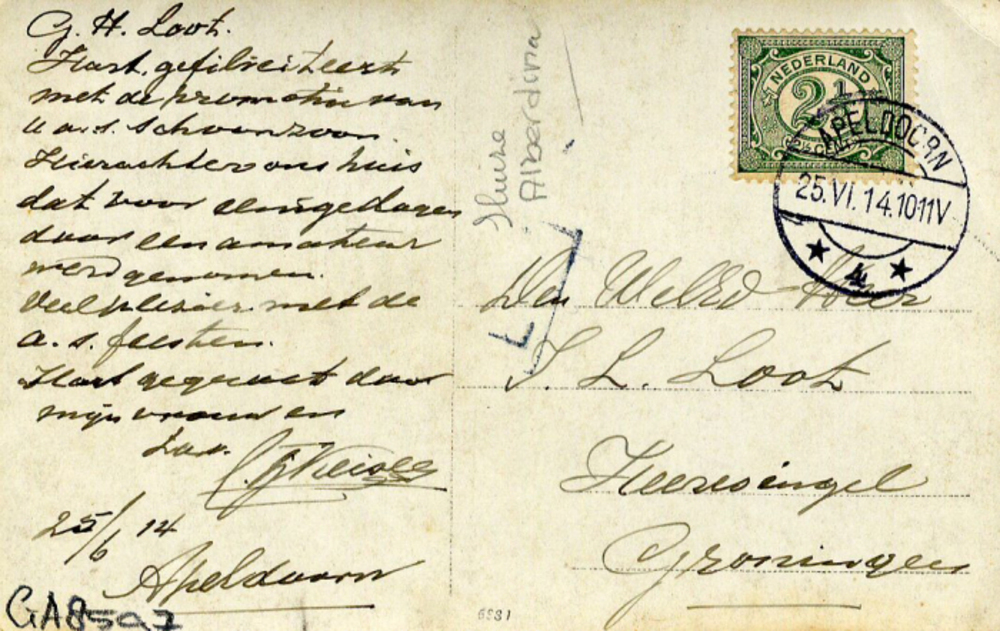 G. H. Loot.
Hart. gefiliciteert
met de promotie van
u a.s. schoonzoon.
Hierachter ons huis
dat voor eenige dagen
door een amateur
werd genomen.
Veel plezier met de
a. s. feesten.
Hart gegroet door
mijn vrouw en
t.a.v.
25/6 14
Apeldoorn
GA8507
Huize
Alberdina
NEDERLAND
2½
2½ CENT
APELDOORN
25.VI.14.1011V
4
Den WelEd Heer
J. L. Loot
Heeresingel
Groningen
6981